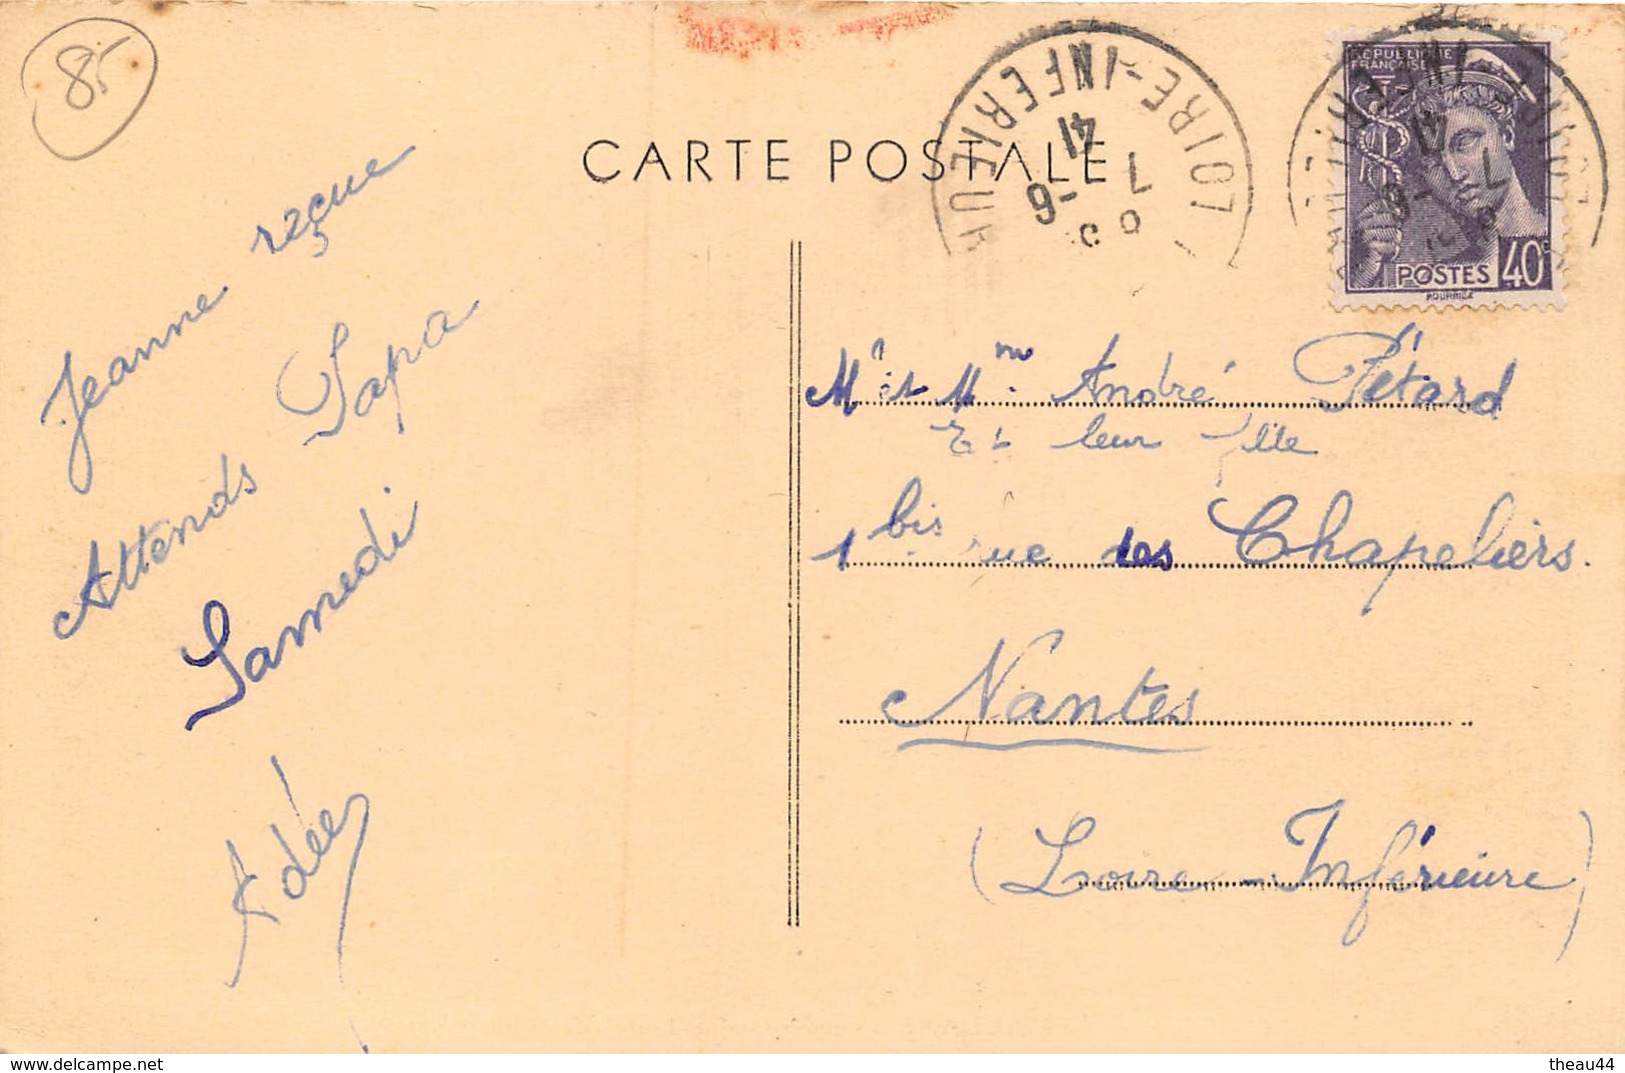 85
CARTE POSTALE
LOIRE-INFERIEUR
7 -6
41
REPUBLIQUE
FRANÇAISE
POSTES 40c
Jeanne reçue
Attends Papa
Samedi
Adée
Mr et Mme André Pétard
Et leur fille
1 bis rue des Chapeliers.
Nantes
(Loire-Inférieure)
www.delcampe.net
theau44